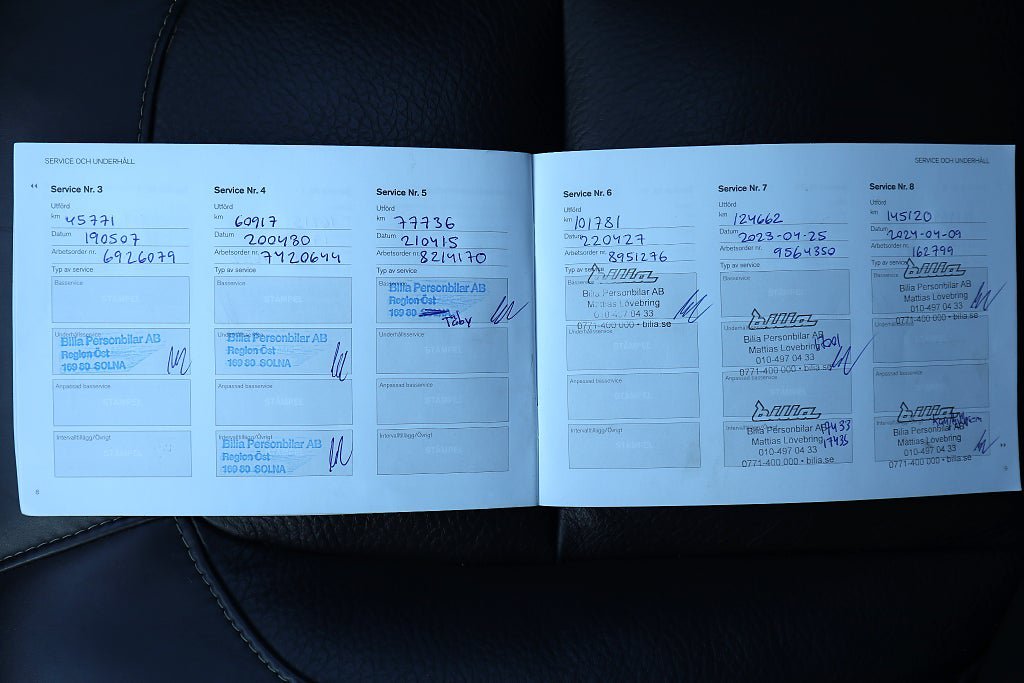 SERVICE OCH UNDERHÅLL
Service Nr. 3
Utförd
km 45771
Datum 190507
Arbetsorder nr. 6926079
Typ av service
Basservice
STÄMPEL
Underhållsservice
Billa Personbilar AB
Region Öst
169 80 SOLNA
Anpassad basservice
STÄMPEL
Intervalltillägg/Övrigt
Service Nr. 4
Utförd
km 60917
Datum 200430
Arbetsorder nr. 7420644
Typ av service
Basservice
STÄMPEL
Underhållsservice
Bilia Personbilar AB
Region Öst
169 80 SOLNA
Anpassad basservice
STÄMPEL
Intervalltillägg/Övrigt
Bilia Personbilar AB
Region Öst
169 80 SOLNA
Service Nr. 5
Utförd
km 77736
Datum 210415
Arbetsorder nr. 8214170
Typ av service
Bilia Personbilar AB
Region Öst
169 80
Täby
Underhållsservice
STÄMPEL
Anpassad basservice
STÄMPEL
Intervalltillägg/Övrigt
STÄMPEL
8
SERVICE OCH UNDERHÅLL
Service Nr. 6
Utförd
km 101781
Datum 220427
Arbetsorder nr. 8951276
Typ av service
bilia
Bilia Personbilar AB
Mattias Lövebring
010-497 04 33
0771-400 000 • bilia.se
Underhållsservice
STÄMPEL
Anpassad basservice
STÄMPEL
Intervalltillägg/Övrigt
STÄMPEL
Service Nr. 7
Utförd
km 124662
Datum 2023-04-25
Arbetsorder nr. 9564350
Typ av service
Basservice
STÄMPEL
bilia
Bilia Personbilar AB
Mattias Lövebring
010-497 04 33
0771-400 000 • bilia.se
Anpassad basservice
bilia
Bilia Personbilar AB
17435
Mattias Lövebring
010-497 04 33
0771-400 000 • bilia.se
Service Nr. 8
Utförd
km 145120
Datum 2024-04-09
Arbetsorder nr. 162799
Typ av service
bilia
Bilia Personbilar AB
Mattias Lövebring
010-497 04 33
0771-400 000 • bilia.se
STÄMPEL
Anpassad basservice
bilia
Bilia Personbilar AB
Mattias Lövebring
010-497 04 33
0771-400 000 • bilia.se
9